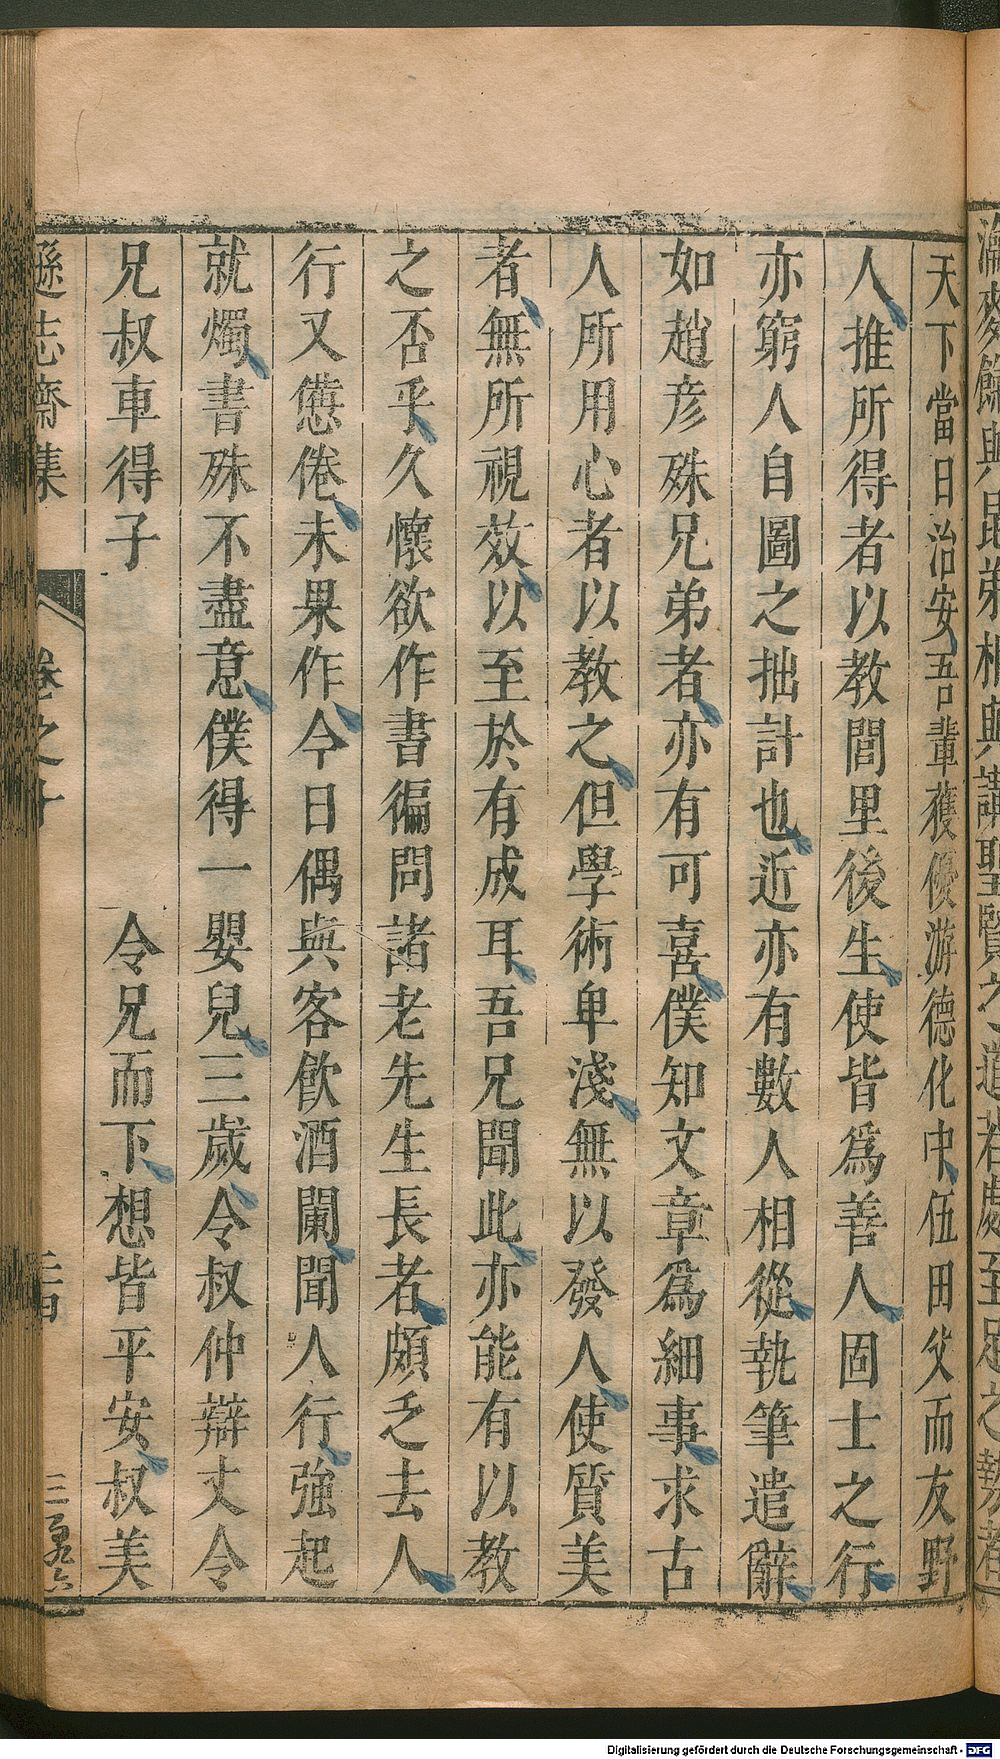 濂麥飽與昆弟相與講聖賢之道若處至足之勢者
天下當日治安吾輩獲優游德化中伍田父而友野
人推所得者以教閭里後生使皆爲善人固士之行
亦窮人自圖之拙計也近亦有數人相從執筆遣辭
如趙彥殊兄弟者亦有可喜僕知文章爲細事求古
人所用心者以教之但學術卑淺無以發人使質美
者無所視效以至於有成耳吾兄聞此亦能有以教
之否乎久懷欲作書徧問諸老先生長者頗乏去人
行又憊倦未果作今日偶與客飲酒闌聞人行強起
就燭書殊不盡意僕得一嬰兒三歲令叔仲辯丈令
兄叔車得子　令兄而下想皆平安叔美
遜志齋集　卷之十　三四
Digitalisierung gefördert durch die Deutsche Forschungsgemeinschaft - DFG